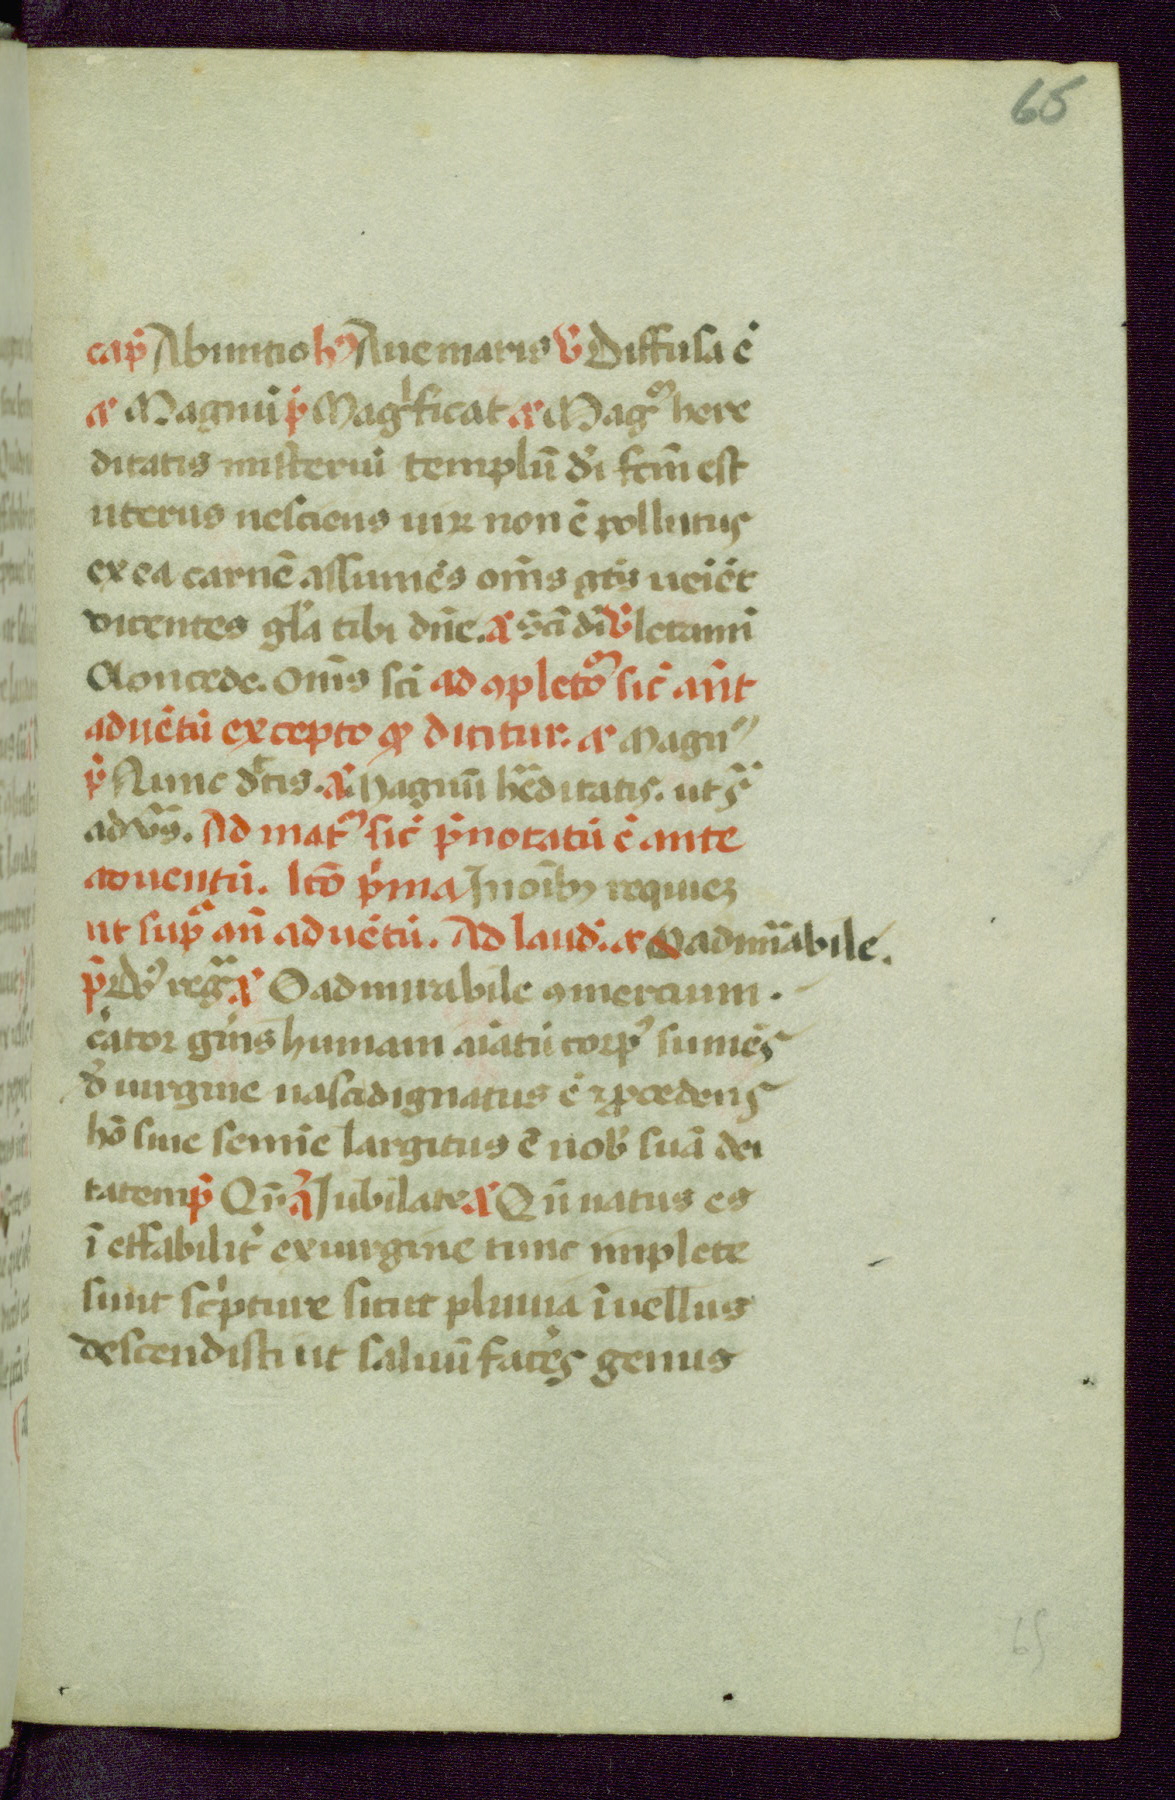 65
cap̄ Ab initio hȳ Aue maris v̄ Diffusa ē
a Magnū p̄ Magnificat a Magm̄ here
ditatis misteriū templū dei fcm̄ est
uterus nesciens uir non ē pollutus
ex ea carnē assumēs om̄s gēs ueiēt
dicentes gl̄a tibi dn̄e. a sc̄i dī v̄ letamī
Concede. om̄s sc̄i ad ꝯpletō sic̄ an̄t
aduētū excepto ꝙ dicitur. a Magn̄
p̄ Nunc dc̄tis. a Magnū hēditatis. ut s̄
ad vs̄. Ad mat̄ sic̄ p̄notatū ē ante
aduentū. Lc̄o p̄ma In oīb; requiez
ut sup̄ an̄ aduētū. Ad laud̄. a O admīabile.
p̄ Dn̄s reg̃ a O admirabile ꝯmercium.
c̄ator gn̄is humani aīatū corp̄ sumēs
d̄ uirgine nasci dignatus ē ⁊ ꝓcedens
hō sine semīe largitus ē nob̄ suā dei
tatem p̄ Qn̄ a Iubilate a Qn̄ natus es
īeffabilit̄ ex uirgine tunc implete
sunt sc̄pture sicut pluuia ī uellus
descendisti ut saluū facēs genus
65